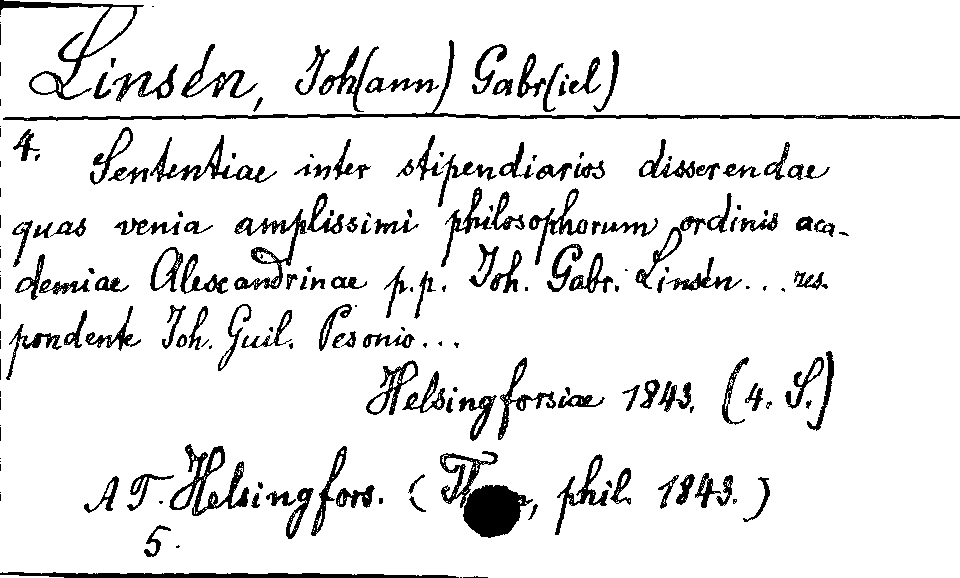 Linsén, Joh(ann) Gabr(iel)
4. Sententiae inter stipendiarios disserendae
quas venia amplissimi philosophorum ordinis aca-
demiae Alexandrinae p.p. Joh. Gabr. Linsén... res-
pondente Joh. Guil. Pesonio...
Helsingforsiae 1843. (4. S.)
AT. Helsingfors. ( phil. 1843.)
5.